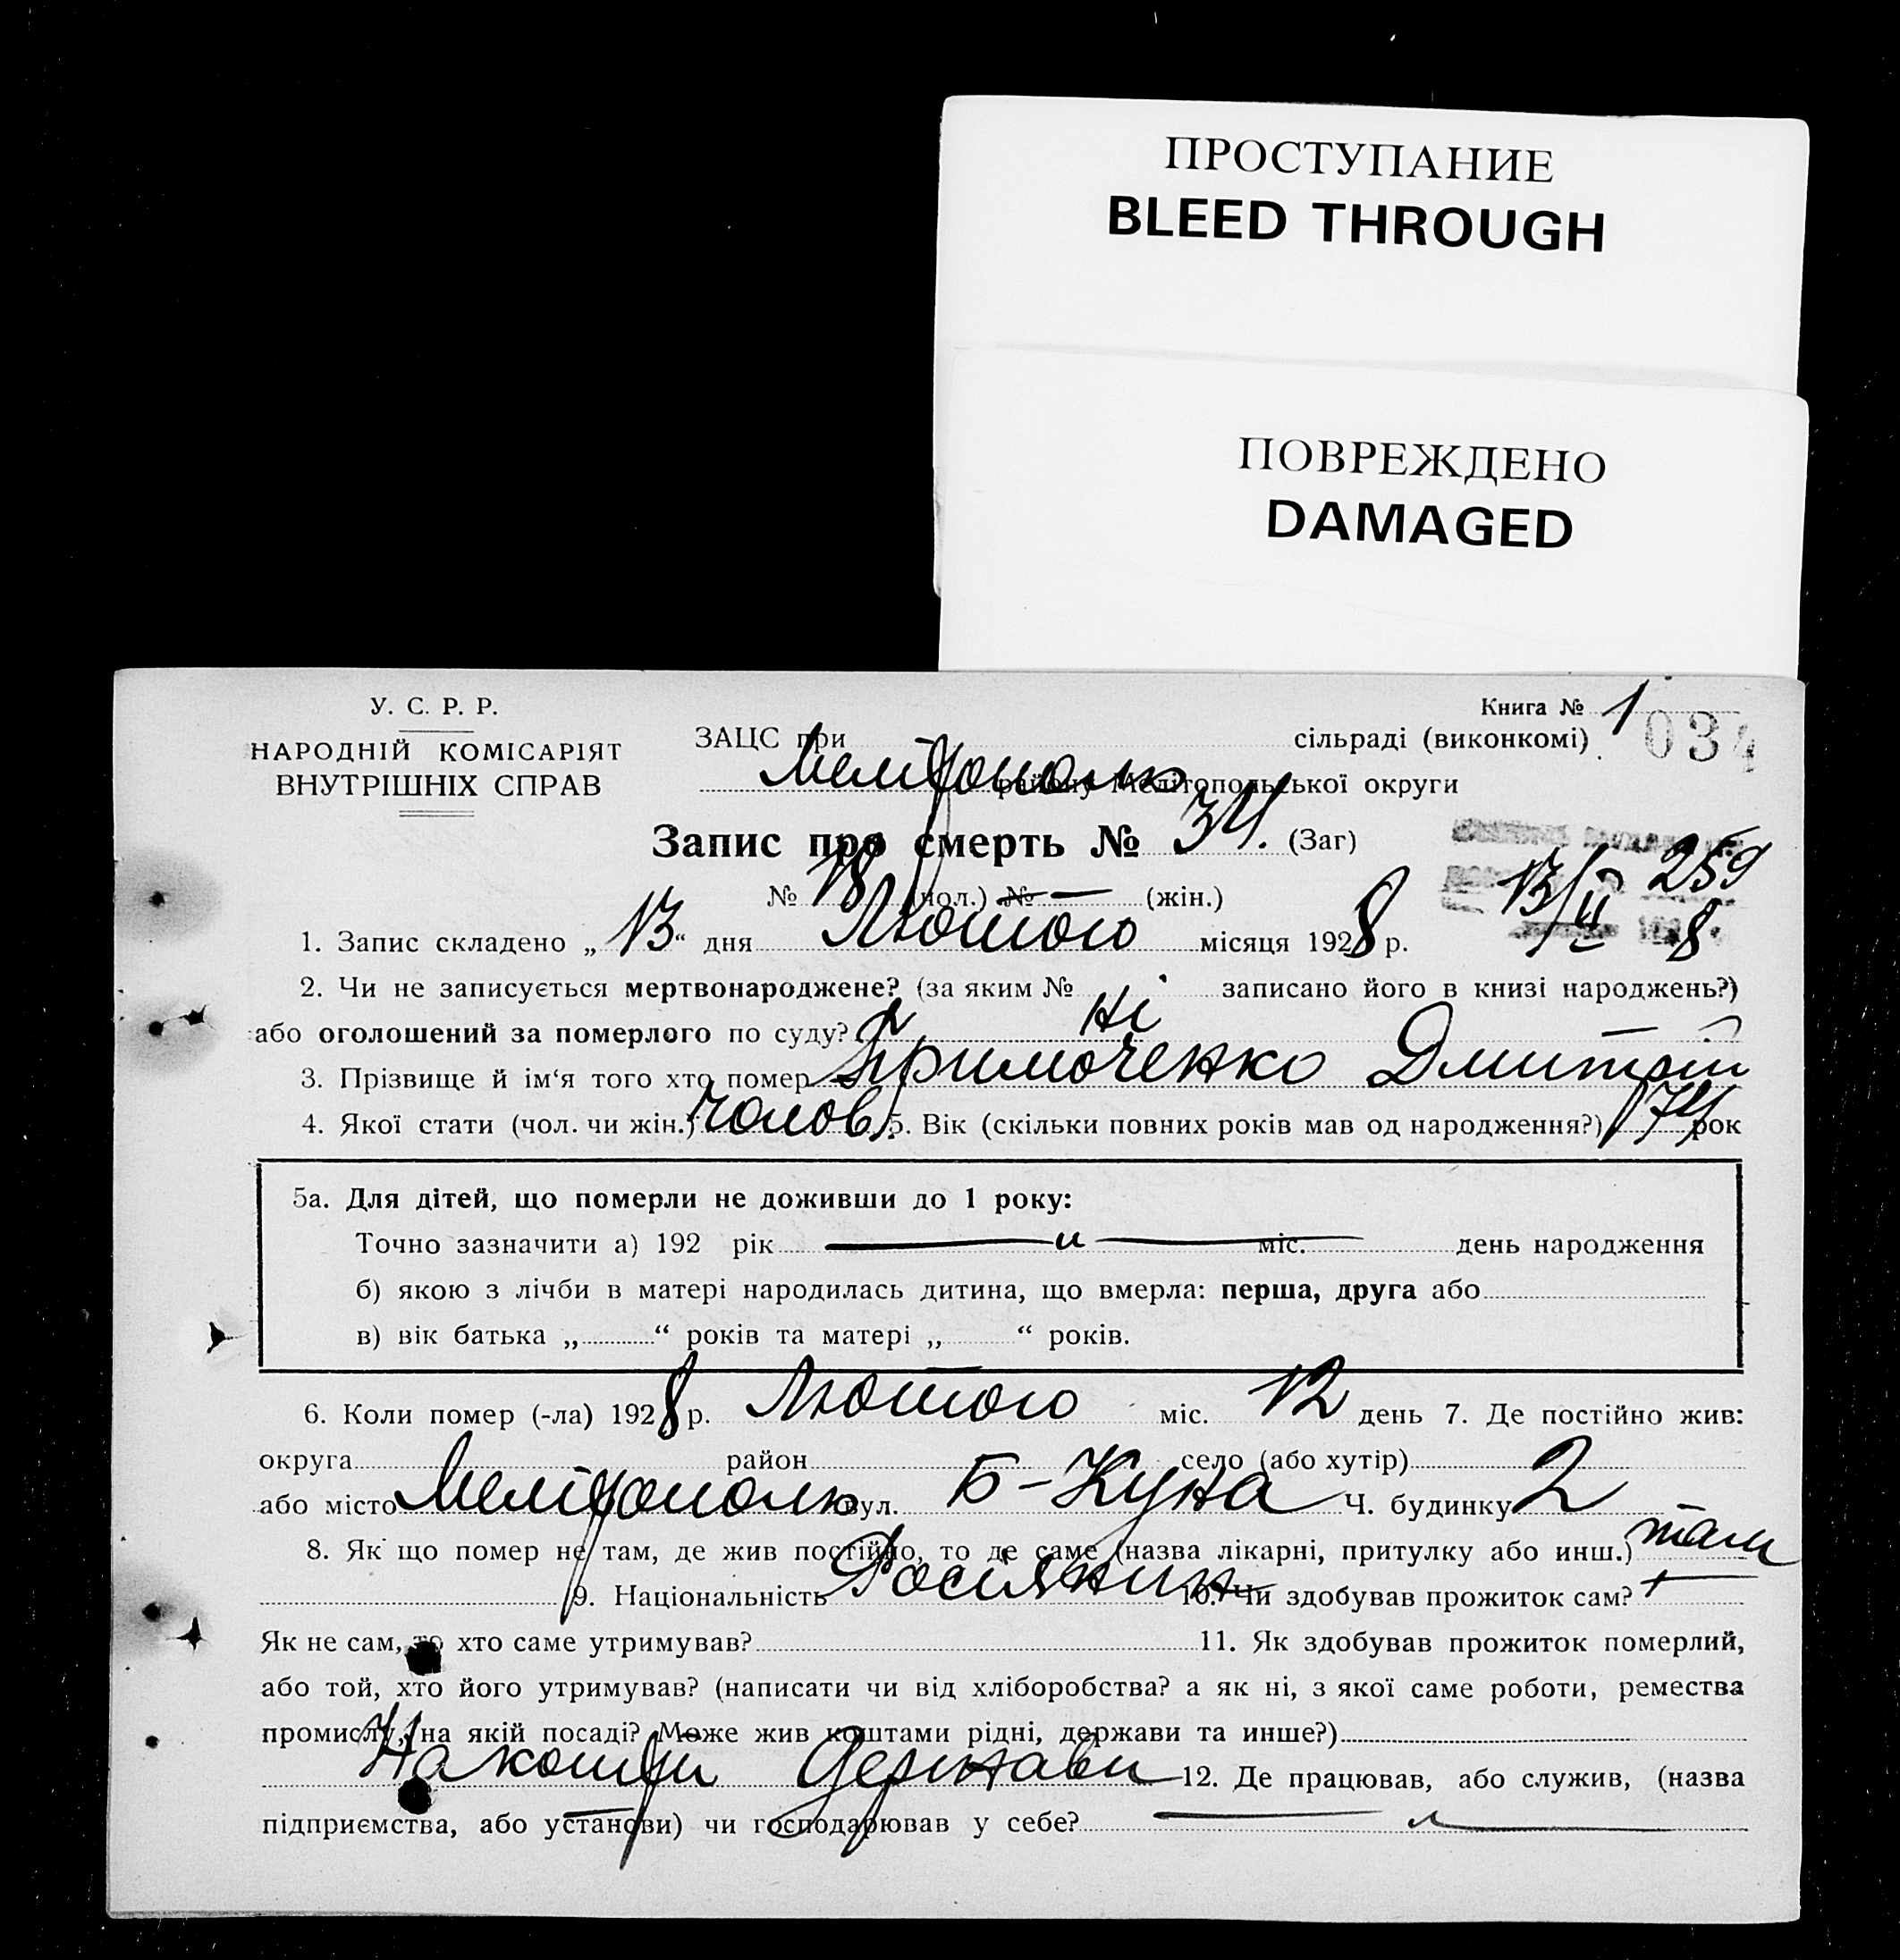 ПРОСТУПАНИЕ
BLEED THROUGH
ПОВРЕЖДЕНО
DAMAGED
У. С. Р. Р.
НАРОДНІЙ КОМІСАРІЯТ
ВНУТРІШНІХ СПРАВ
Книга № 1
034
ЗАЦС при сільраді (виконкомі)
Мелітополь району Мелітопольської округи
Запис про смерть № 34. (Заг)
№ 18 (чол.) № — (жін.)
13/II 259
8
1. Запис складено „13“ дня Лютого місяця 1928 р.
2. Чи не записується мертвонароджене? (за яким № записано його в книзі народжень?)
або оголошений за померлого по суду? ні
3. Прізвище й ім‘я того хто помер Дмитрій
4. Якої стати (чол. чи жін.) чолов. 5. Вік (скільки повних років мав од народження?) 74 рок
5а. Для дітей, що померли не доживши до 1 року:
Точно зазначити а) 192 рік міс. день народження
б) якою з лічби в матері народилась дитина, що вмерла: перша, друга або
в) вік батька „ “ років та матері „ “ років.
6. Коли помер (-ла) 1928 р. Лютого міс. 12 день 7. Де постійно жив:
округа район село (або хутір)
або місто Мелітополь вул. Б-Куна Ч. будинку 2
8. Як що помер не там, де жив постійно, то де саме (назва лікарні, притулку або инш.) там
9. Національність Росіянин 10. Чи здобував прожиток сам?
Як не сам, то хто саме утримував? 11. Як здобував прожиток померлий,
або той, хто його утримував? (написати чи від хліборобства? а як ні, з якої саме роботи, ремества
промислу, на якій посаді? Може жив коштами рідні, держави та инше?)
На кошти Держави 12. Де працював, або служив, (назва
підприємства, або установи) чи господарював у себе? —